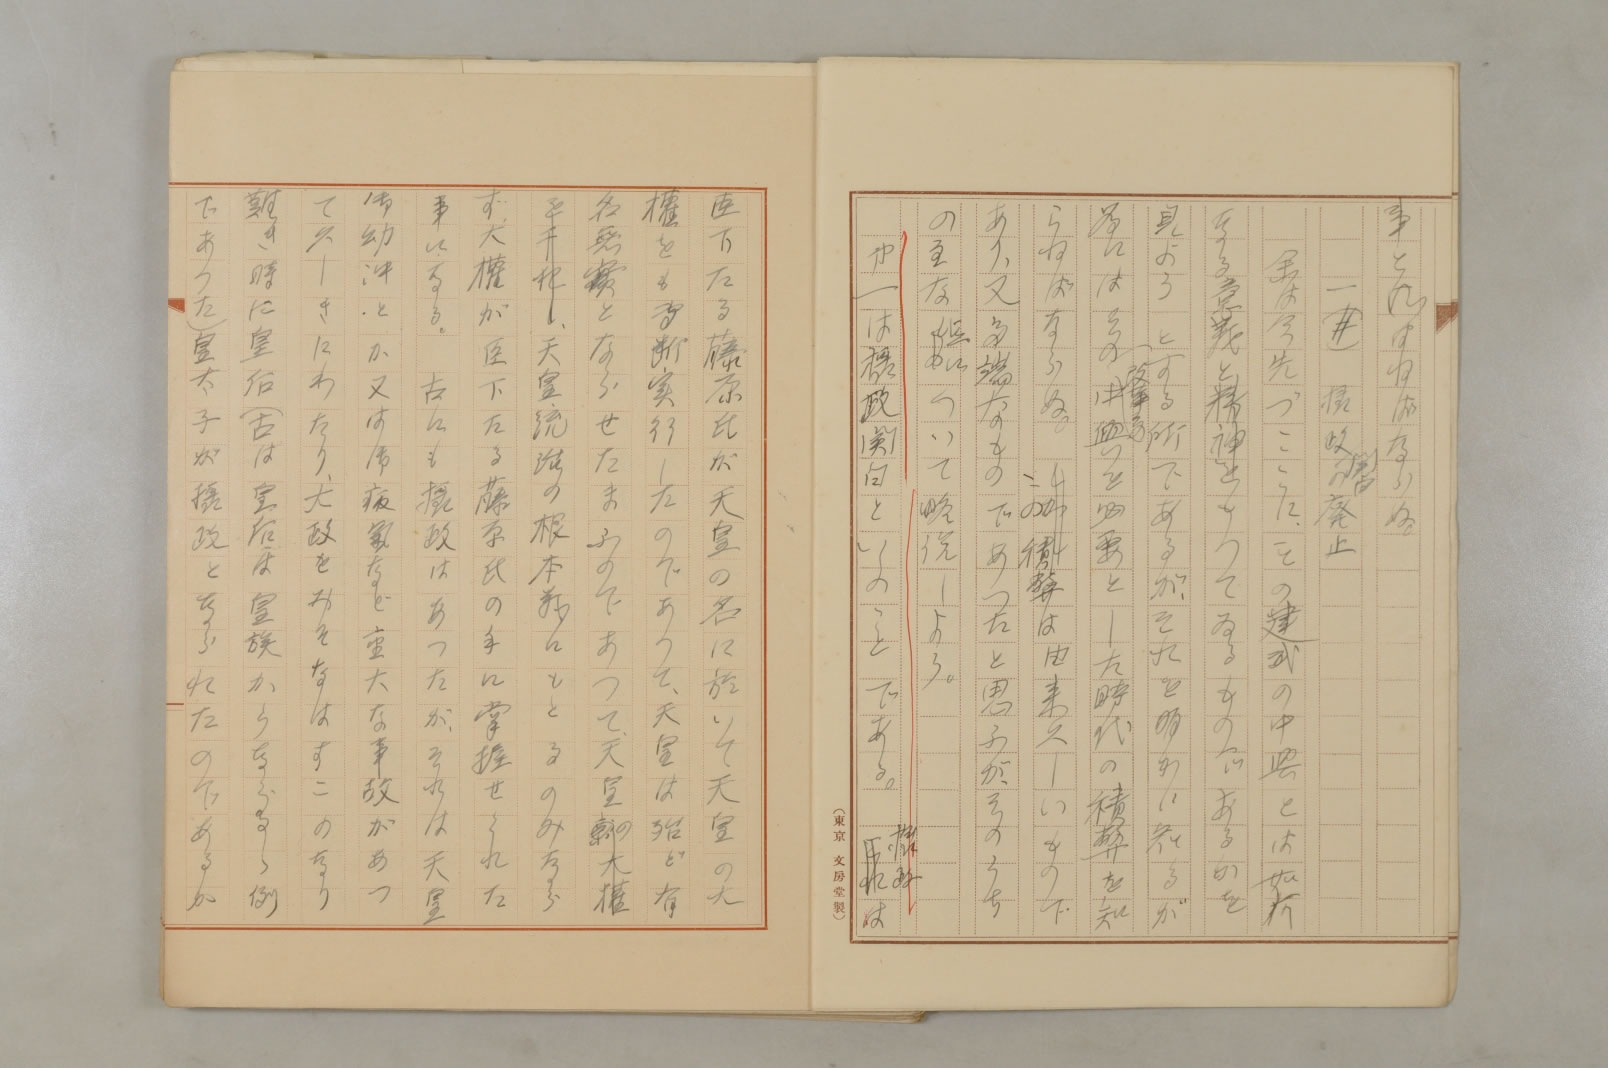 事と思はねばならぬ。
一(井) 摂政関白の廃止
余は今先づここに、この建武の中興とは如何
なる意義と精神とをもつてゐるものであるかを
見ようとする所であるが、それを明かに知るが
為にはその中興を必要とした時代の積弊を知
らねばならぬ。この積弊は由来久しいもので
あり、又多端なものであつたと思ふが、そのうち
の主な については略説しよう。
第一は摂政関白といふことである。摂政 は
(東京 文房堂製)
臣下たる藤原氏が天皇の名に於いて天皇の大
権をも専断実行したのであつて、天皇は殆ど有
名無実とならせたまふのであつて、天皇の大権
を干犯し、天皇統治の根本義にもとるのみなら
ず、大権が臣下たる藤原氏の手に掌握せられた
事になる。古にも摂政はあつたが、それは天皇
御幼冲とか又は御病気など重大な事故があつ
て久しきにわたり、大政をみそなはすこのなり
難き時に皇后(古は皇后は皇族からなふるゝ例
であつた)皇太子が摂政となられたのであるか